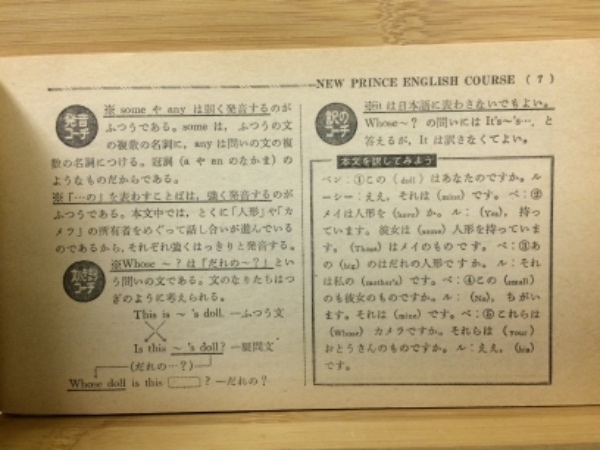 NEW PRINCE ENGLISH COURSE ( 7 )
発音
コーチ
※ some や any は弱く発音するのが
ふつうである。some は, ふつうの文
の複数の名詞に, any は問いの文の複
数の名詞につける。冠詞 (a や an のなかま) の
ようなものだからである。
※『…の』を表わすことばは, 強く発音するのが
ふつうである。本文中では, とくに「人形」や「カ
メラ」の所有者をめぐって話し合いが進んでいる
のであるから, それぞれ強くはっきりと発音する。
コーチ
※Whose ～ ? は『だれの～?』とい
う問いの文である。文のなりたちはつ
ぎのように考えられる。
This is ～ 's doll. —ふつう文
Is this ～ 's doll? —疑問文
(だれの…?)
Whose doll is this ? —だれの?
訳の
コーチ
※it は日本語に表わさないでもよい。
Whose～? の問いには It's～'s…. と
答えるが, It は訳さなくてよい。
本文を訳してみよう
ベン: ①この (doll) はあなたのですか。ル
ーシー: ええ, それは (mine) です。ベ: ②
メイは人形を (have) か。ル: (Yes), 持っ
ています。彼女は (some) 人形を持っていま
す。(Those) はメイのものです。ベ: ③あ
の (big) のはだれの人形ですか。ル: それ
は私の (mother's) です。ベ: ④この (small)
のも彼女のものですか。ル: (No), ちがい
ます。それは (mine) です。ベ: ⑤これらは
(Whose) カメラですか。それらは (your)
おとうさんのものですか。ル: ええ, (his)
です。